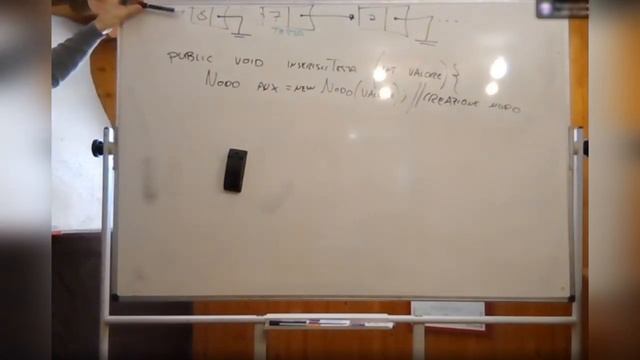 5 7 2 ...
TESTA
PUBLIC VOID INSERISCITESTA (INT VALORE) {
NODO AUX = NEW NODO(VALORE); //CREAZIONE NODO